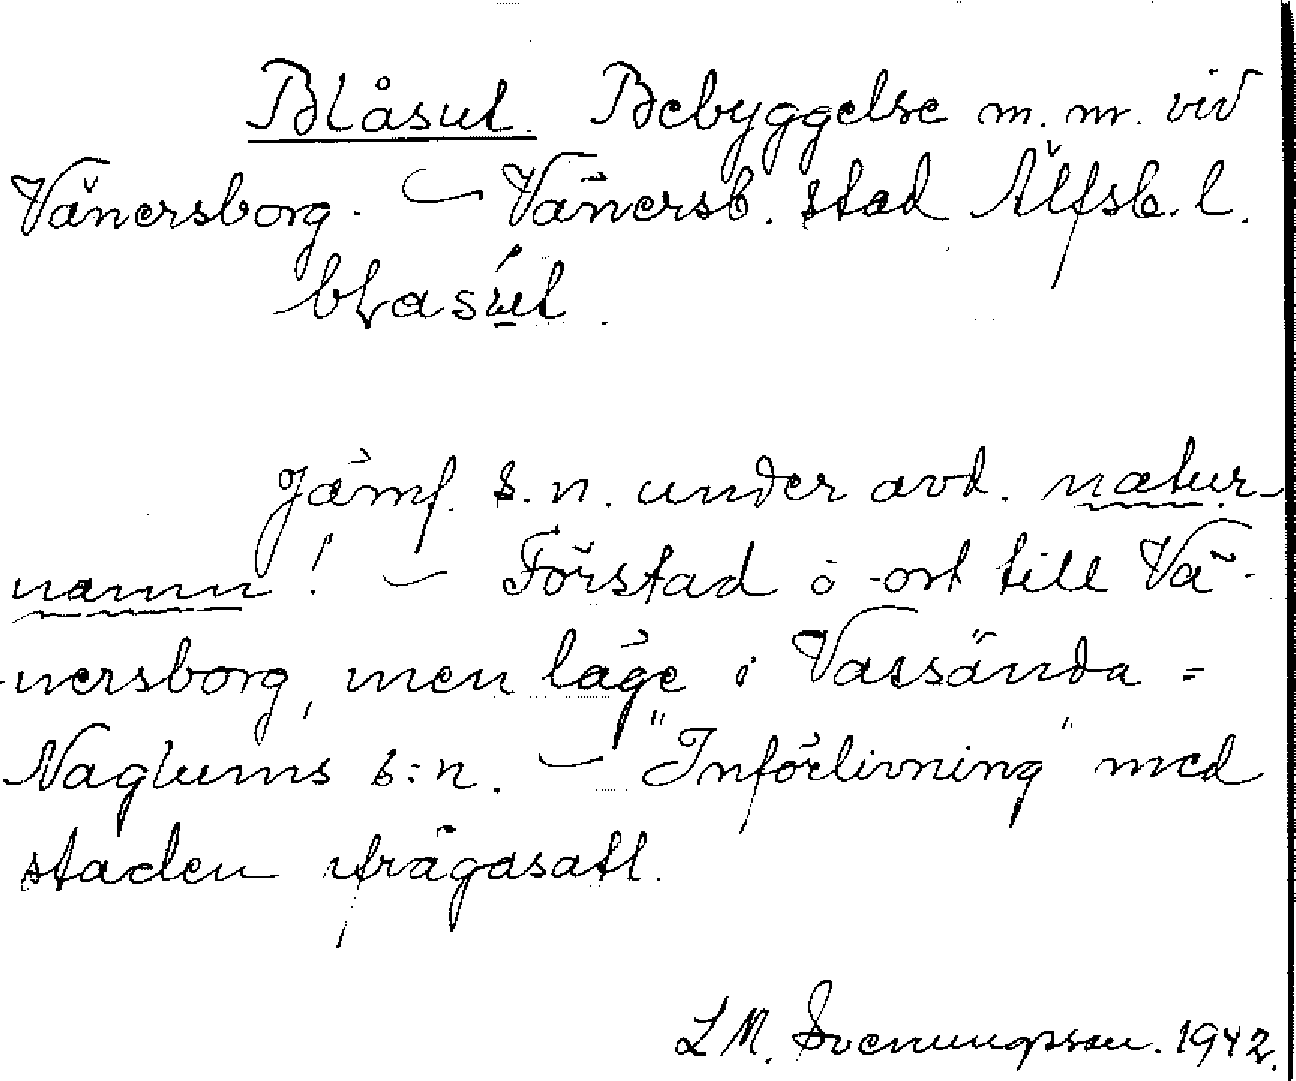 Blåsut. Bebyggelse m. m. vid
Vänersborg. — Vänersb. stad Älfsb. l.
Jämf. s. n. under avd. natur-
namn! — Förstad o -ort till Vä-
nersborg, men läge i Vassända-
Naglums s:n. — "Införlivning" med
staden ifrågasatt.
L M. Svenungsson. 1942.